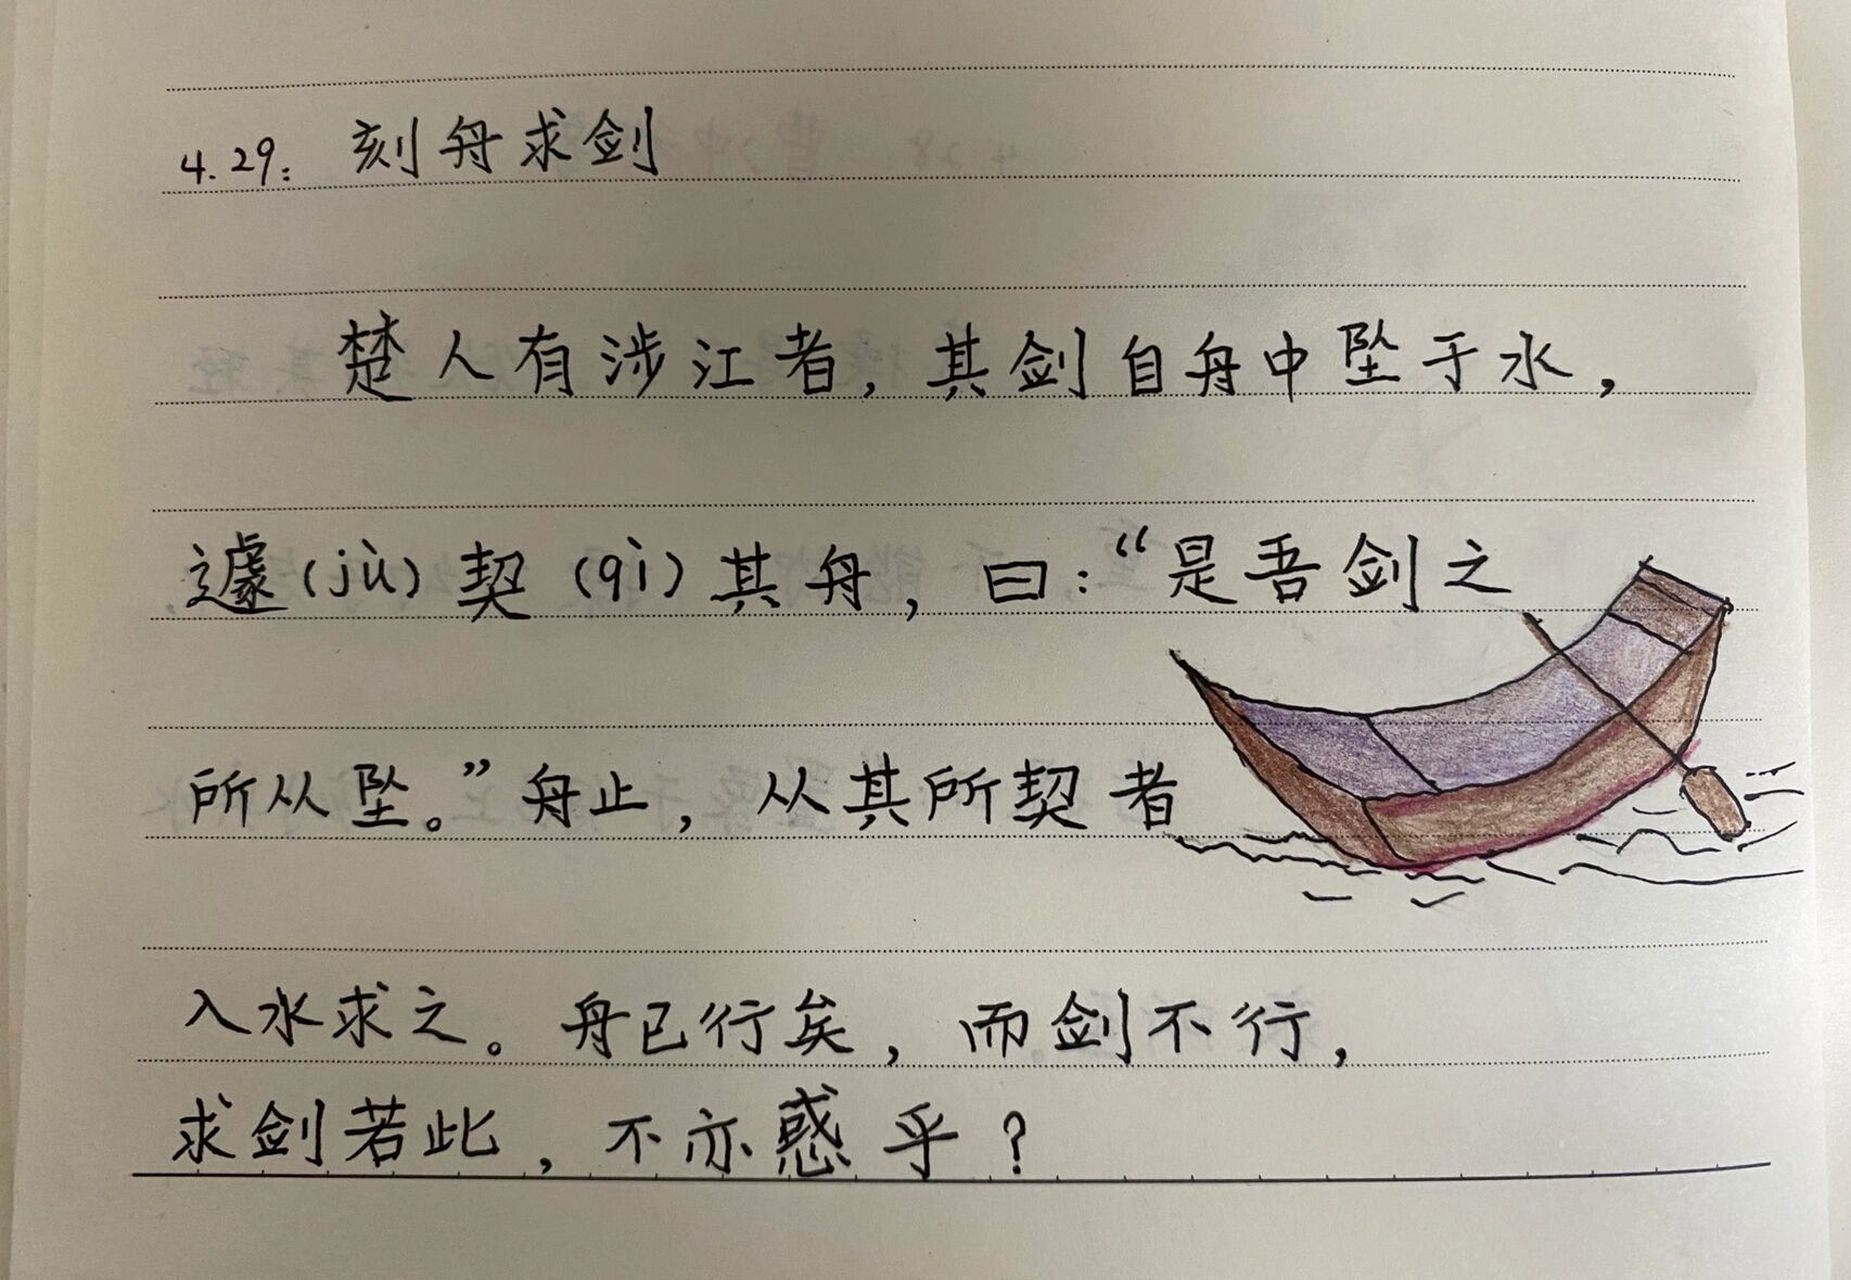 4.29: 刻舟求剑
楚人有涉江者,其剑自舟中坠于水,
遽(jù)契(qì)其舟,曰:“是吾剑之
所从坠。”舟止,从其所契者
入水求之。舟已行矣,而剑不行,
求剑若此,不亦惑乎?